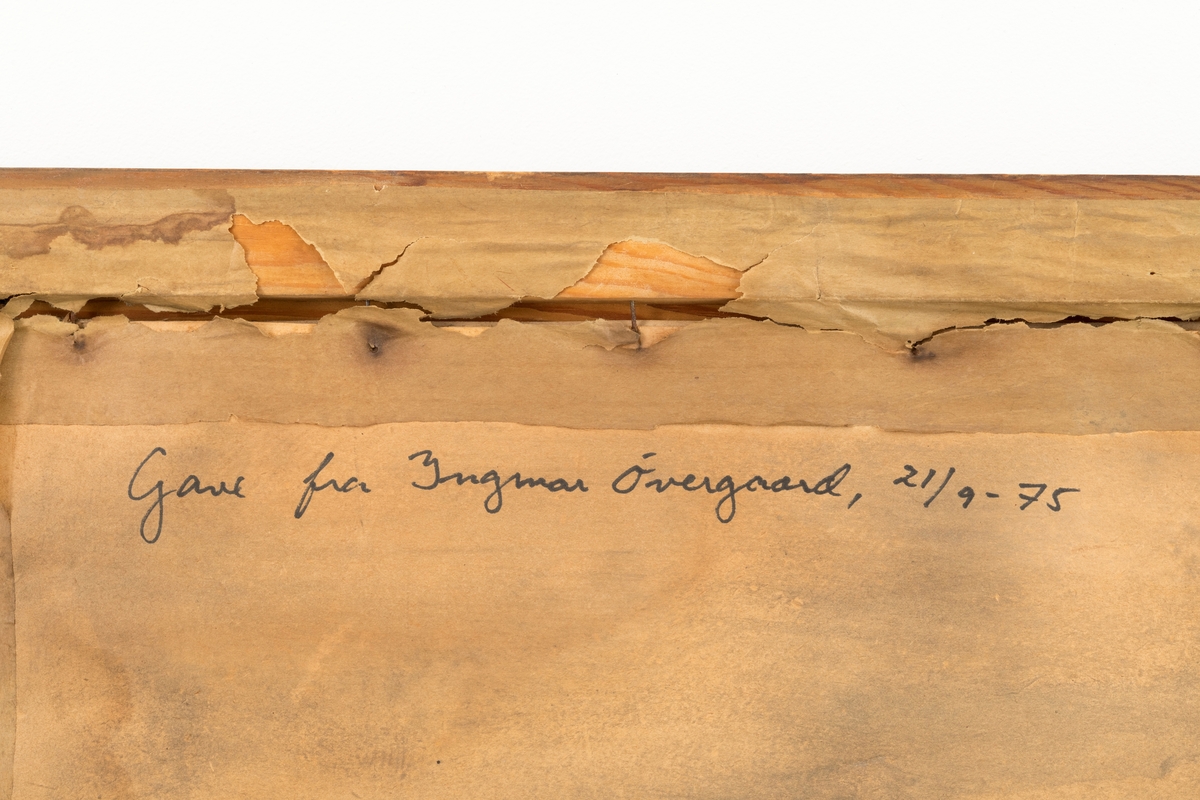 Gave fra Yngmar Óvergaard, 21/9-75